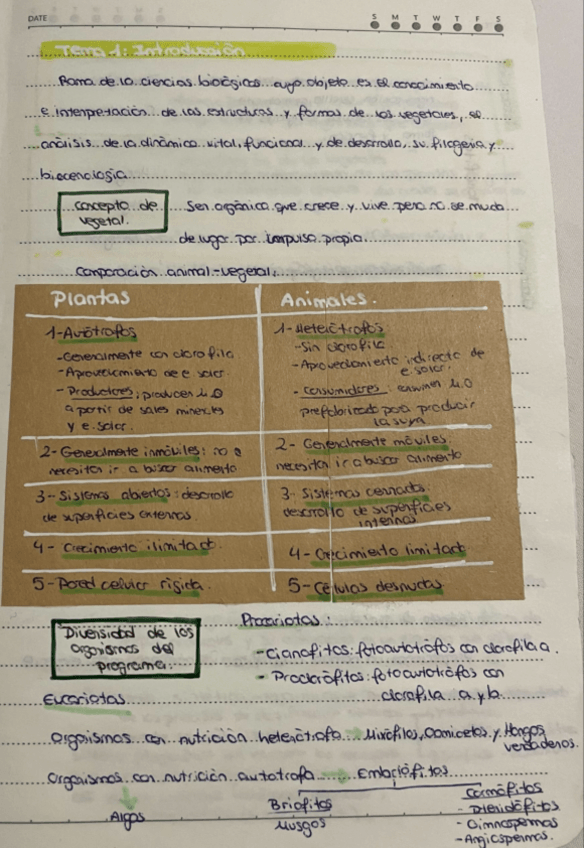 DATE
S M T W T F S
Tema 1: Introducción
Rama de la ciencias biológicas cuyo objeto es el conocimiento
e interpretación de las estructuras y formas de los vegetales, el
análisis de la dinámica vital, funcional y de desarrollo, su filogenia y
biocenología
concepto de
vegetal.
Ser orgánico que crece y vive pero no se muda
de lugar por impulso propio.
Comparación animal-vegetal.
Plantas
1-Autótrofos
-Generalmente con clorofila
-Aprovechamiento de e solar.
-Productores, producen M.O
a partir de sales minerales
y e. solar.
2- Generalmente inmóviles: no
necesitan ir a buscar alimento
3- Sistemas abiertos: desarrollo
de superficies externas.
4- Crecimiento ilimitado.
5- Pared celular rígida.
Animales.
1-Heterótrofos
-Sin clorofila
-Aprovechamiento indirecto de
e solar.
-Consumidores: consumen M.O
prefabricada para producir
la suya
2- Generalmente móviles:
necesitan ir a buscar alimento
3- Sistemas cerrados:
desarrollo de superficies
internas
4- Crecimiento limitado
5- Células desnudas
Diversidad de los
organismos del
programa:
Procariotas:
-Cianofitos: fotoautótrofos con clorofila a.
- Proclorófitos: fotoautótrofos con
clorofila a y b
Eucariotas
Organismos con nutrición heterótrofa → Mixófilos, Oomicetos y Hongos
verdaderos.
Organismos con nutrición autótrofa → Embriófitos
Algas
Briofitos
Musgos
Cormófitos
- Pteridófitos
- Gimnospermas
- Angiospermas.